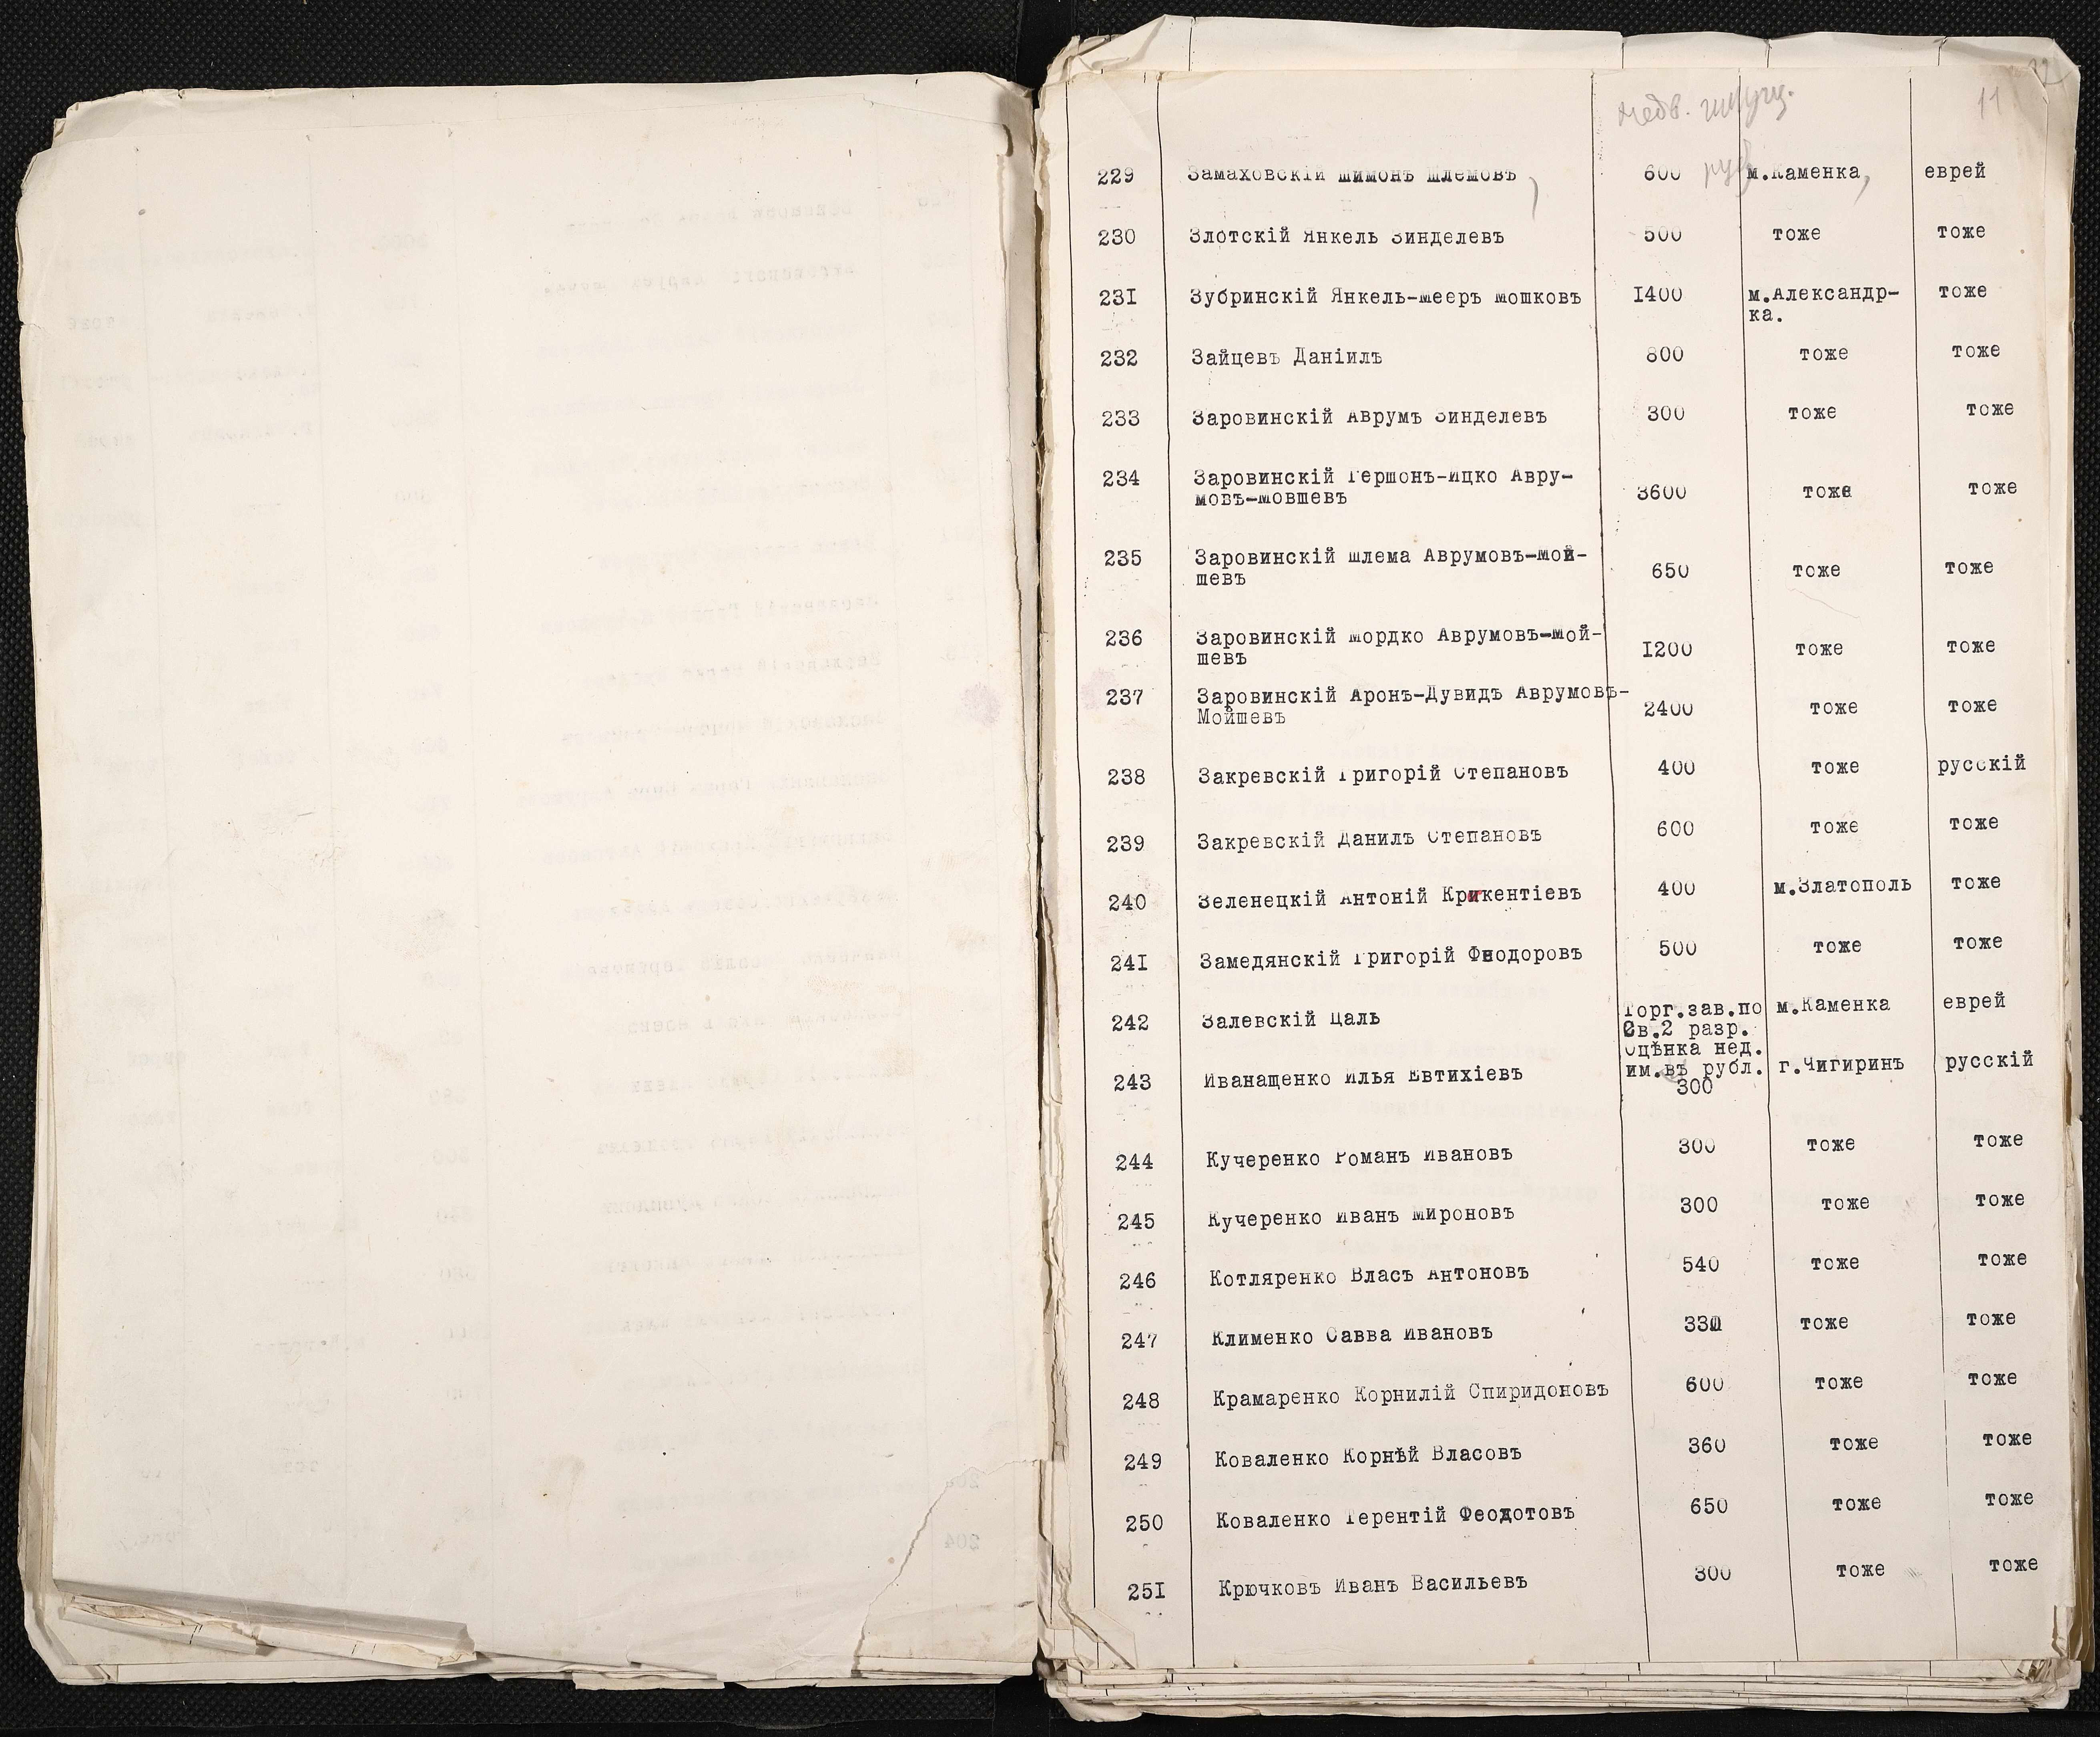 11
недв. имущ.
руб
229 Замаховскій Шимонъ Шлемовъ 600 м.Каменка, еврей
230 Злотскій Янкель Зинделевъ 500 тоже тоже
231 Зубринскій Янкель-Мееръ Мошковъ 1400 м.Александр- тоже
ка.
232 Зайцевъ Даніилъ 800 тоже тоже
233 Заровинскій Аврумъ Зинделевъ 300 тоже тоже
234 Заровинскій Гершонъ-Ицко Авру-
мовъ-Мовшевъ 3600 тоже тоже
235 Заровинскій Шлема Аврумовъ-Мой-
шевъ 650 тоже тоже
236 Заровинскій Мордко Аврумовъ-Мой-
шевъ 1200 тоже тоже
237 Заровинскій Аронъ-Дувидъ Аврумовъ-
Мойшевъ 2400 тоже тоже
238 Закревскій Григорій Степановъ 400 тоже русскій
239 Закревскій Данилъ Степановъ 600 тоже тоже
240 Зеленецкій Антоній Крикентіевъ 400 м.Златополь тоже
241 Замедянскій Григорій Феодоровъ 500 тоже тоже
242 Залевскій Цаль Торг.зав.по м.Каменка еврей
Св.2 разр.
Оцѣнка нед.
243 Иванащенко Илья Евтихіевъ им.въ рубл. г.Чигиринъ русскій
300
244 Кучеренко Романъ Ивановъ 300 тоже тоже
245 Кучеренко Иванъ Мироновъ 300 тоже тоже
246 Котляренко Власъ Антоновъ 540 тоже тоже
247 Клименко Савва Ивановъ 330 тоже тоже
248 Крамаренко Корнилій Спиридоновъ 600 тоже тоже
249 Коваленко Корнѣй Власовъ 360 тоже тоже
250 Коваленко Терентій Феодотовъ 650 тоже тоже
251 Крючковъ Иванъ Васильевъ 300 тоже тоже